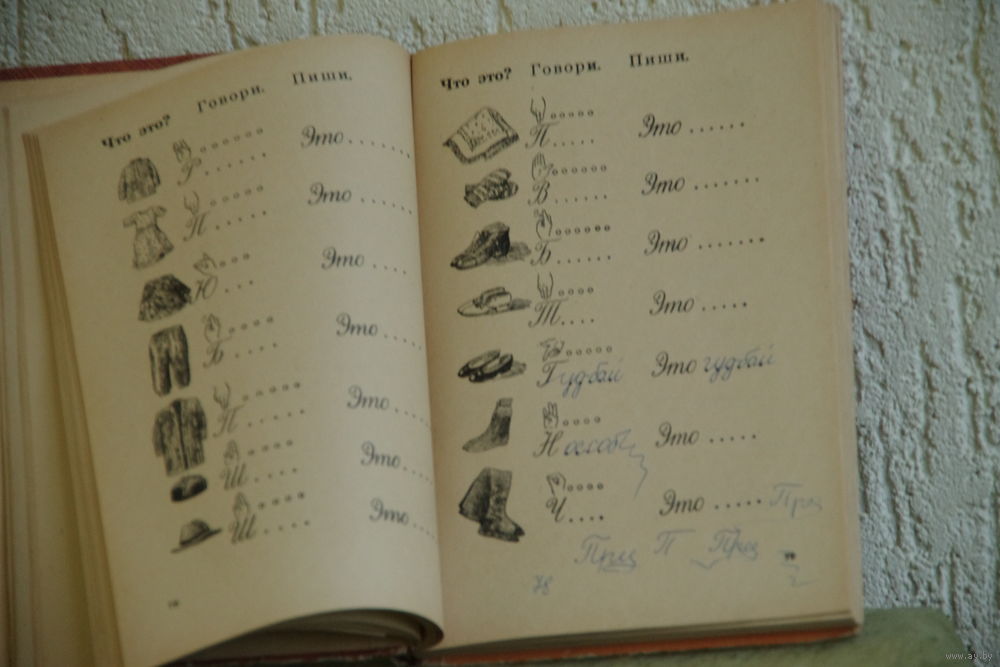 Что это? Говори. Пиши.
Это.......
П...... Это ......
Ю... Это ....
Б.... Это .....
П..... Это ....
Ш.... Это....
Ш.... Это...
Что это? Говори. Пиши.
П..... Это ......
В...... Это .......
Б...... Это .......
Т.... Это .....
Гудбай Это гудбай
Н Это .....
Ч.... Это .....
П
78
www.ay.by